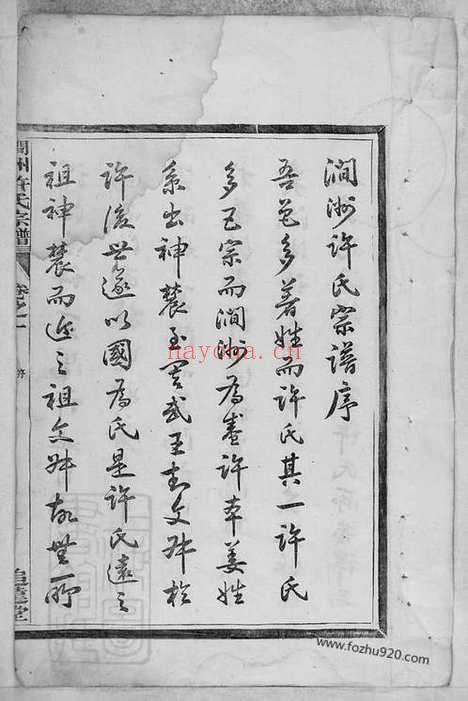 澗洲許氏宗譜序
吾邑多著姓而許氏其一許氏
多宗而澗洲為盛許本姜姓
系出神農至周武王封文叔於
許後世遂以國為氏是許氏遠之
祖神農而近之祖文叔故無所
澗州許氏宗譜 卷之一 序
nayona.cn
www.fozhu920.com